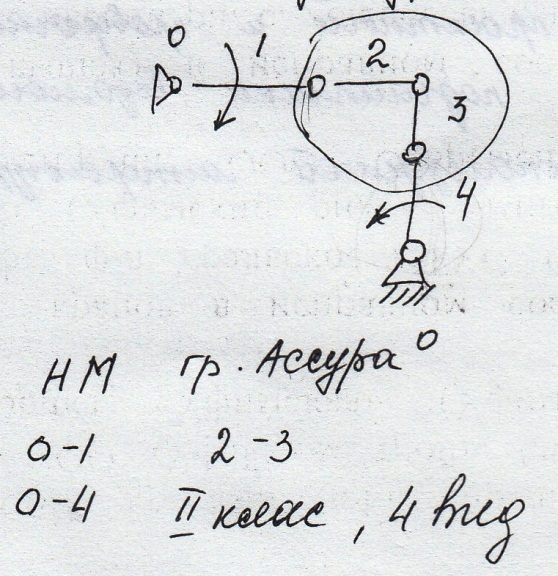 0
1
2
3
4
0
НМ гр. Ассура
0-1 2-3
0-4 II клас, 4 вид